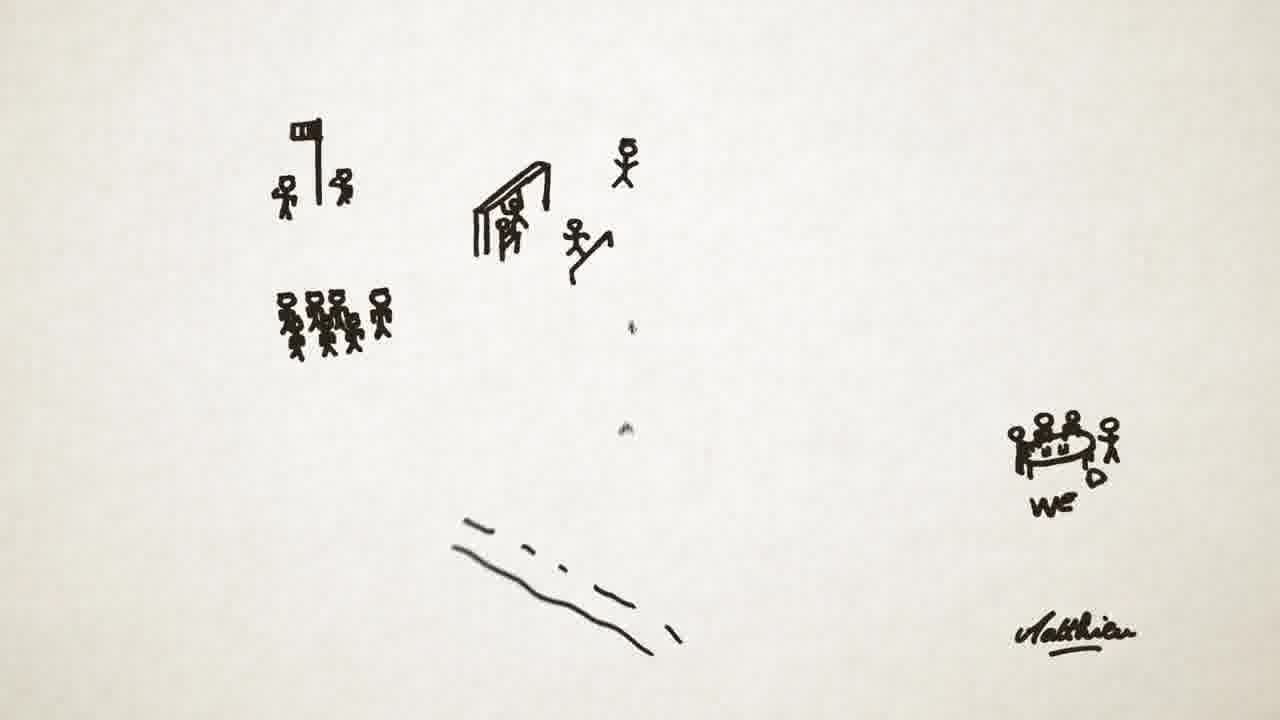 we
Matthieu